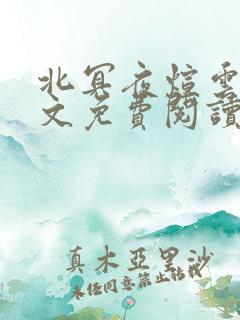 北冥夜煊雲
文免費閱讀
真木亞里沙
未經同意禁止轉載